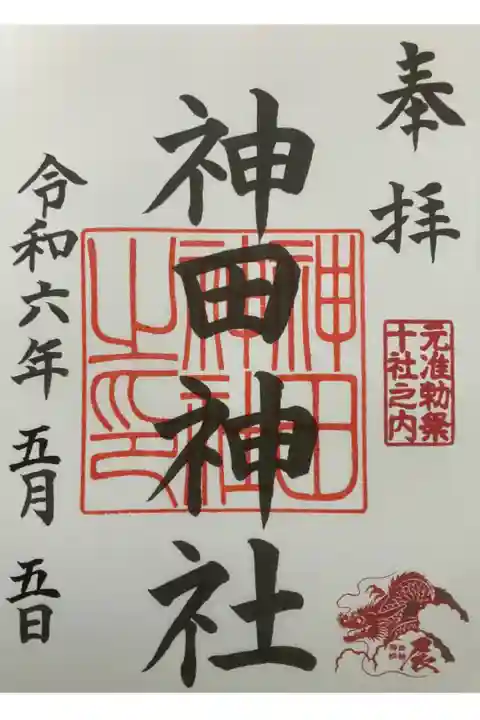 奉拝
元准勅祭
十社之内
辰
神田神社
神田
神社
之印
令和六年五月五日